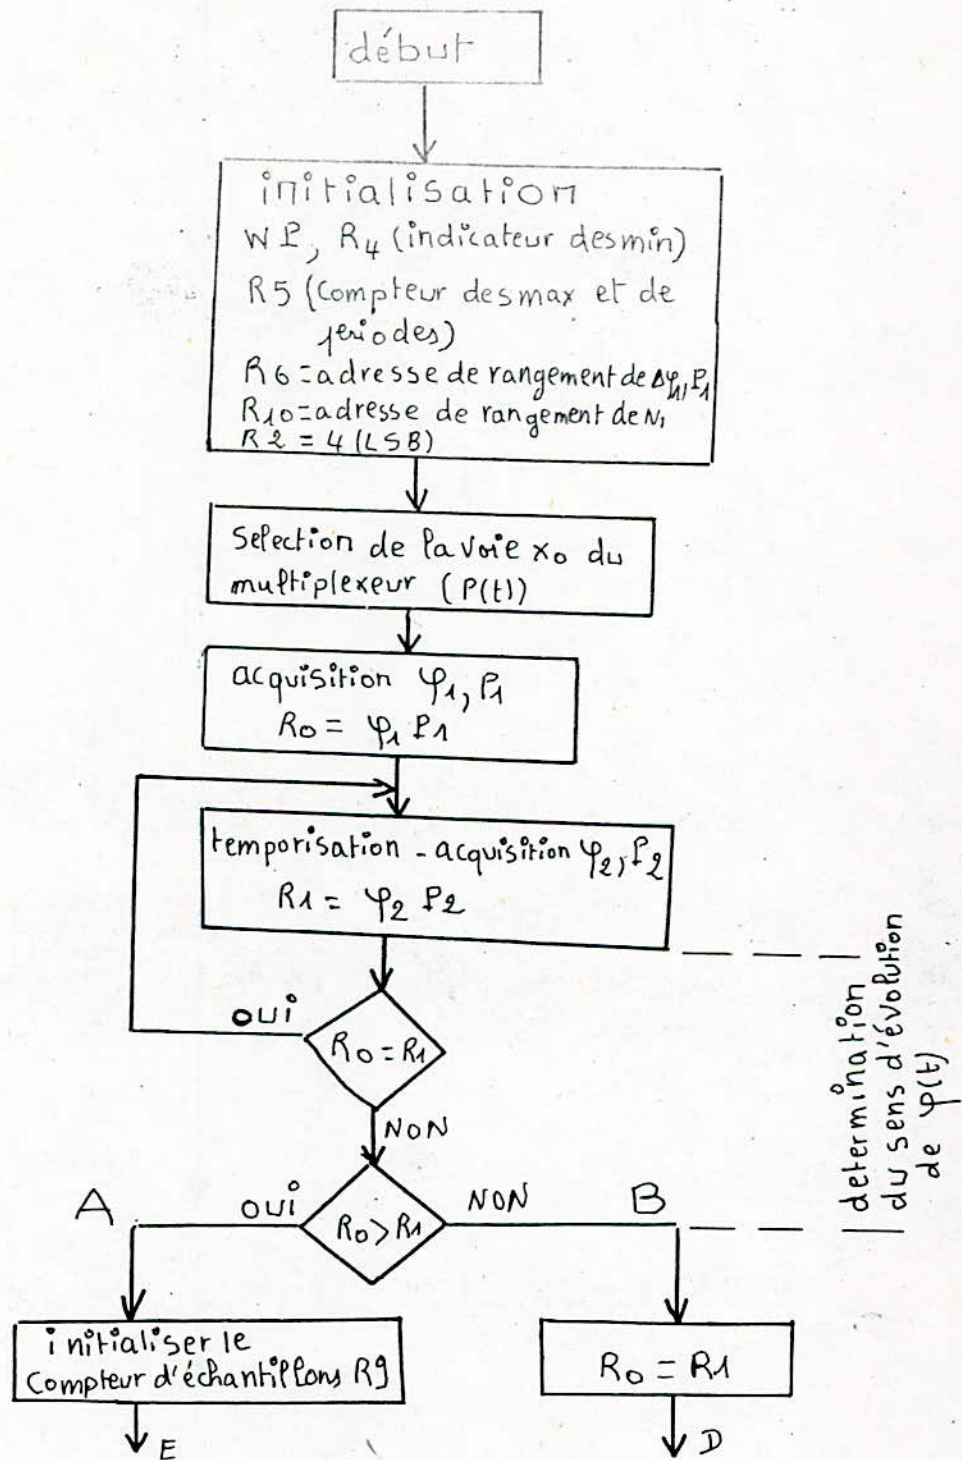 début
initialisation
WP, R4 (indicateur des min)
R5 (Compteur des max et de
periodes)
R6 = adresse de rangement de Δφ1, P1
R10 = adresse de rangement de N1
R2 = 4 (LSB)
Selection de la voie x0 du
multiplexeur (P(t))
acquisition φ1, P1
R0 = φ1 P1
temporisation - acquisition φ2, P2
R1 = φ2 P2
OUI
R0 = R1
NON
determination
du sens d'évolution
de φ(t)
A
OUI
R0 > R1
NON
B
initialiser le
Compteur d'échantillons R9
R0 = R1
E
D